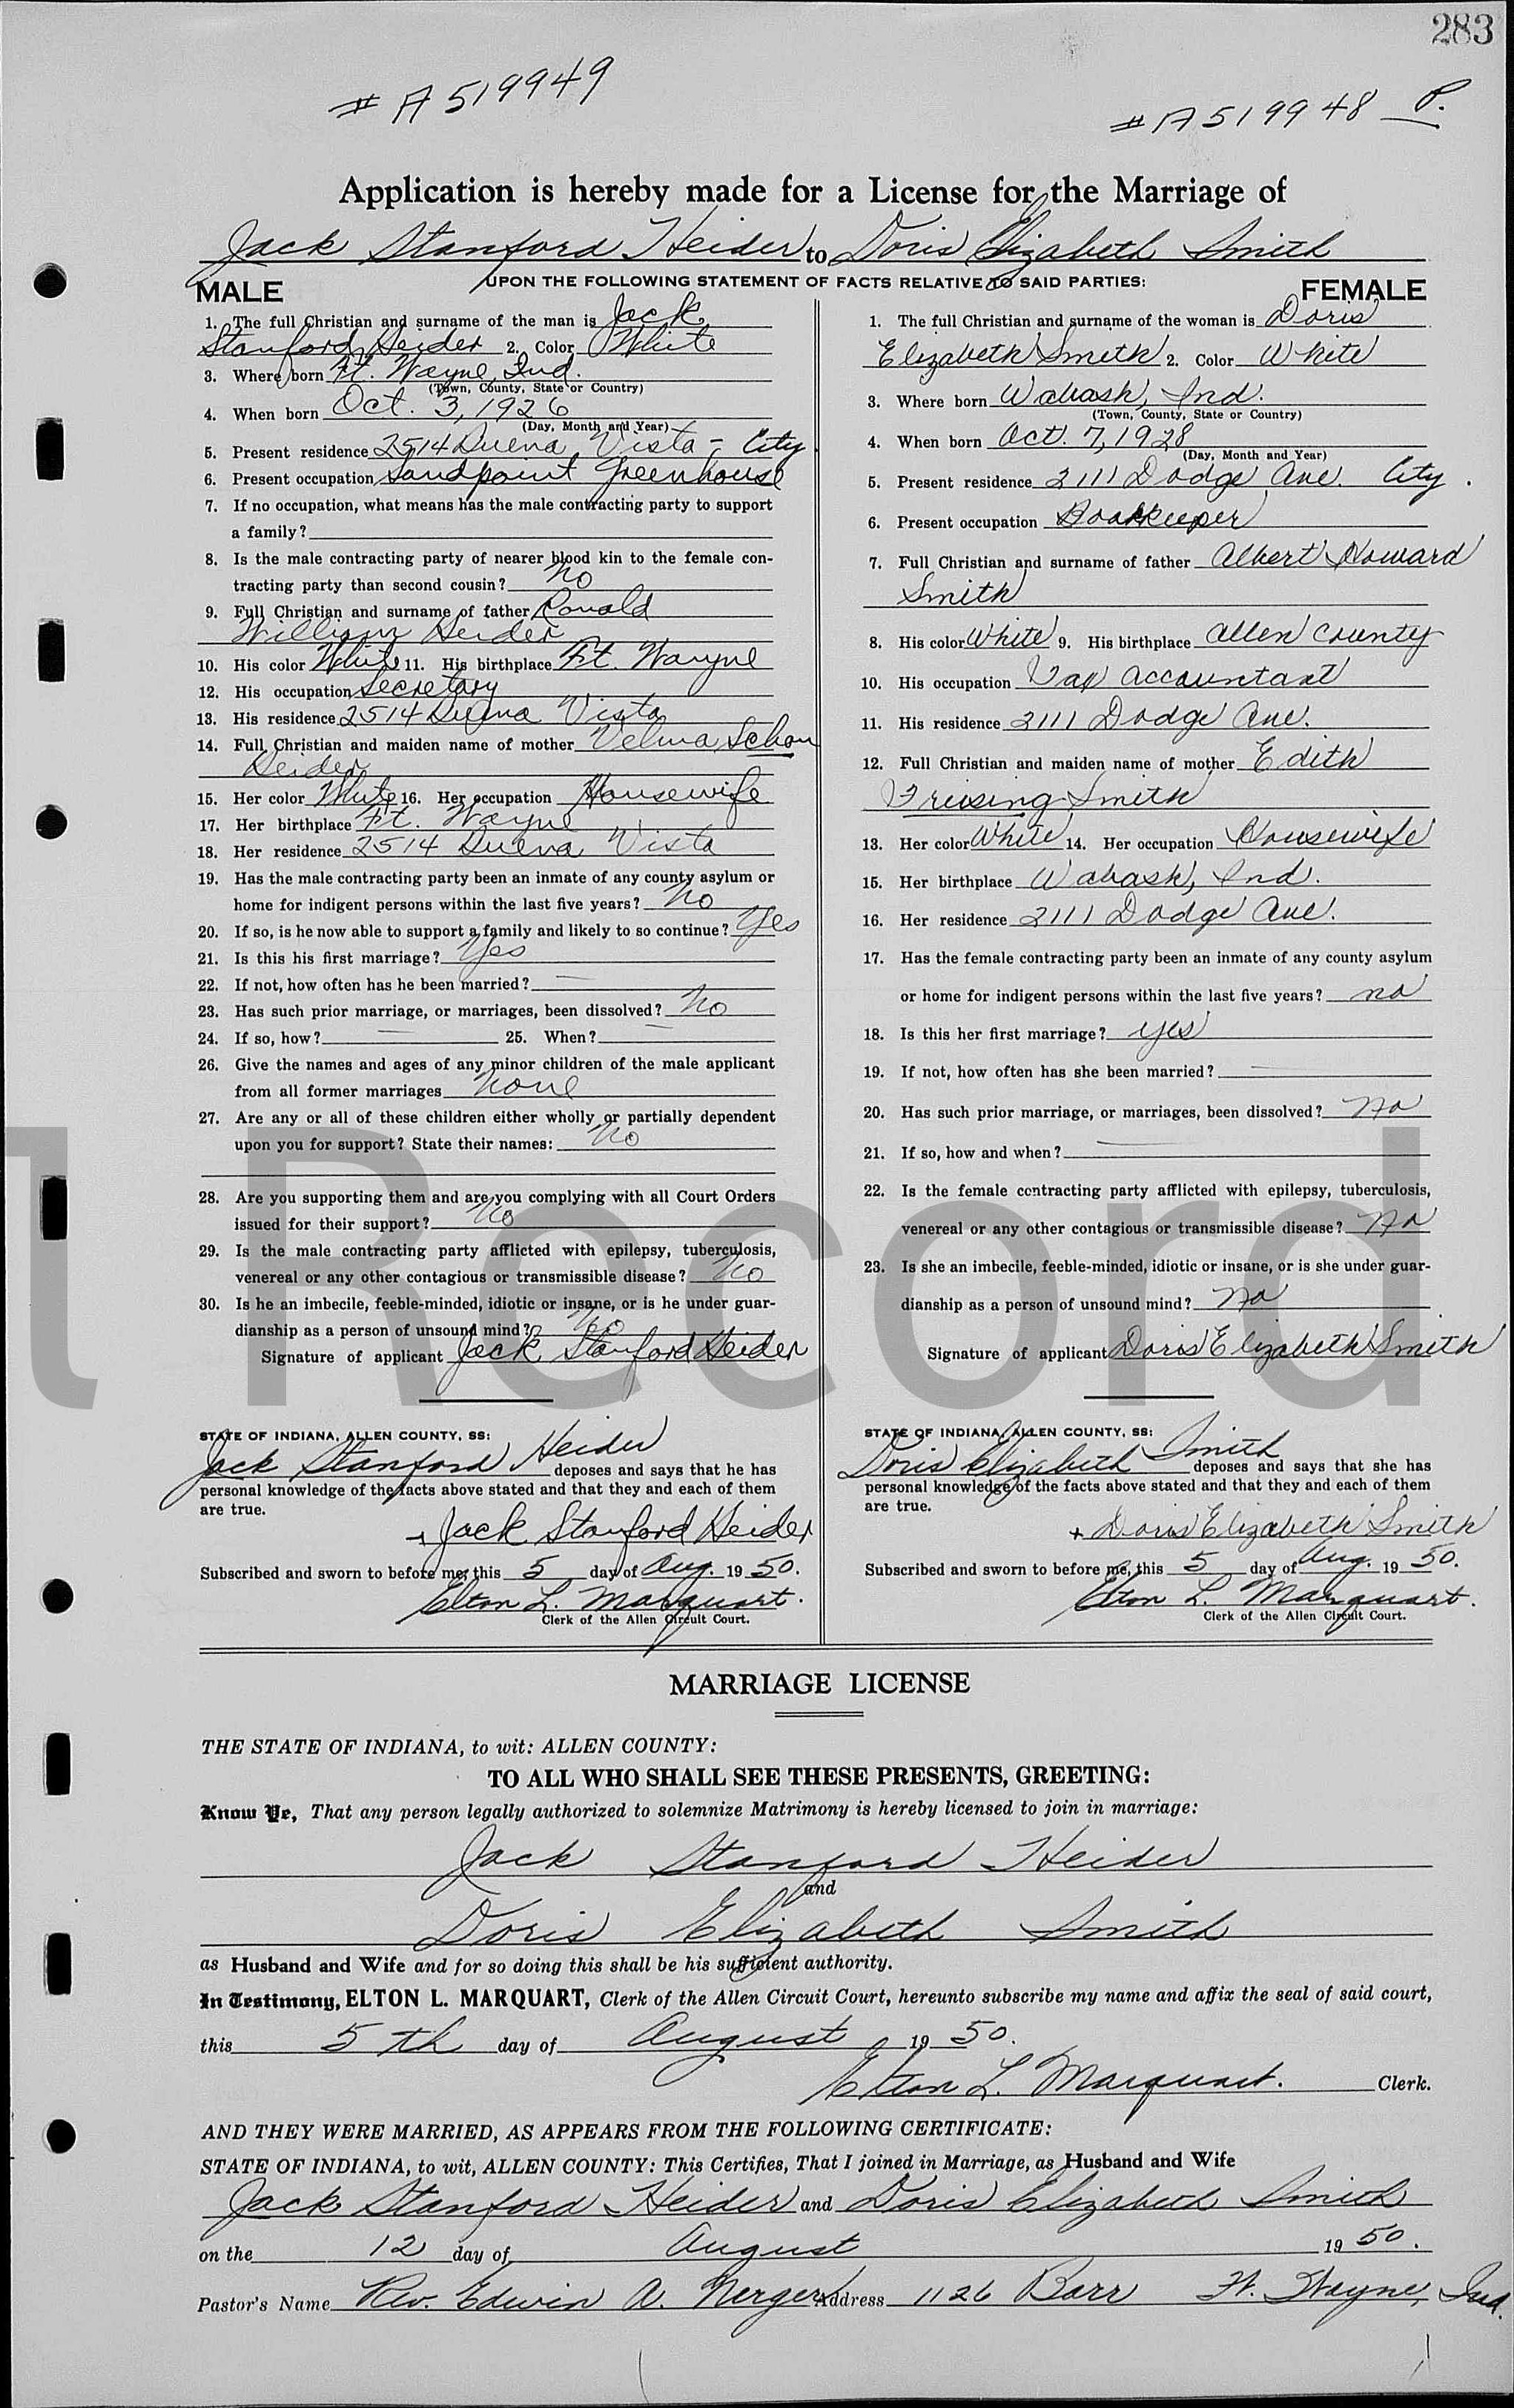 283
# A519949
# A519948 P.
Application is hereby made for a License for the Marriage of
Jack Stanford Heider to Doris Elizabeth Smith
UPON THE FOLLOWING STATEMENT OF FACTS RELATIVE TO SAID PARTIES:
MALE
1. The full Christian and surname of the man is Jack
Stanford Heider 2. Color White
3. Where born Ft. Wayne, Ind.
(Town, County, State or Country)
4. When born Oct. 3, 1926
(Day, Month and Year)
5. Present residence 2514 Buena Vista - City
6. Present occupation Sandpoint Greenhouse
7. If no occupation, what means has the male contracting party to support
a family?
8. Is the male contracting party of nearer blood kin to the female con-
tracting party than second cousin? No
9. Full Christian and surname of father Ronald
William Heider
10. His color White 11. His birthplace Ft. Wayne
12. His occupation Secretary
13. His residence 2514 Buena Vista
14. Full Christian and maiden name of mother Velma Schon
Heider
15. Her color White 16. Her occupation Housewife
17. Her birthplace Ft. Wayne
18. Her residence 2514 Buena Vista
19. Has the male contracting party been an inmate of any county asylum or
home for indigent persons within the last five years? No
20. If so, is he now able to support a family and likely to so continue? Yes
21. Is this his first marriage? Yes
22. If not, how often has he been married? —
23. Has such prior marriage, or marriages, been dissolved? No
24. If so, how? — 25. When? —
26. Give the names and ages of any minor children of the male applicant
from all former marriages None
27. Are any or all of these children either wholly or partially dependent
upon you for support? State their names: No
28. Are you supporting them and are you complying with all Court Orders
issued for their support? No
29. Is the male contracting party afflicted with epilepsy, tuberculosis,
venereal or any other contagious or transmissible disease? No
30. Is he an imbecile, feeble-minded, idiotic or insane, or is he under guar-
dianship as a person of unsound mind? No
Signature of applicant Jack Stanford Heider
STATE OF INDIANA, ALLEN COUNTY, SS:
Jack Stanford Heider deposes and says that he has
personal knowledge of the facts above stated and that they and each of them
are true.
+ Jack Stanford Heider
Subscribed and sworn to before me, this 5 day of Aug. 1950.
Elton L. Marquart.
Clerk of the Allen Circuit Court.
FEMALE
1. The full Christian and surname of the woman is Doris
Elizabeth Smith 2. Color White
3. Where born Wabash, Ind.
(Town, County, State or Country)
4. When born Oct. 7, 1928
(Day, Month and Year)
5. Present residence 2111 Dodge Ave. City.
6. Present occupation Bookkeeper
7. Full Christian and surname of father Albert Howard
Smith
8. His color White 9. His birthplace Allen County
10. His occupation Tax Accountant
11. His residence 2111 Dodge Ave.
12. Full Christian and maiden name of mother Edith
Smith
13. Her color White 14. Her occupation Housewife
15. Her birthplace Wabash, Ind.
16. Her residence 2111 Dodge Ave.
17. Has the female contracting party been an inmate of any county asylum
or home for indigent persons within the last five years? no
18. Is this her first marriage? yes
19. If not, how often has she been married? —
20. Has such prior marriage, or marriages, been dissolved? no
21. If so, how and when? —
22. Is the female contracting party afflicted with epilepsy, tuberculosis,
venereal or any other contagious or transmissible disease? no
23. Is she an imbecile, feeble-minded, idiotic or insane, or is she under guar-
dianship as a person of unsound mind? no
Signature of applicant Doris Elizabeth Smith
STATE OF INDIANA, ALLEN COUNTY, SS:
Doris Elizabeth Smith deposes and says that she has
personal knowledge of the facts above stated and that they and each of them
are true.
+ Doris Elizabeth Smith
Subscribed and sworn to before me, this 5 day of Aug. 1950.
Elton L. Marquart.
Clerk of the Allen Circuit Court.
l Record
MARRIAGE LICENSE
THE STATE OF INDIANA, to wit: ALLEN COUNTY:
TO ALL WHO SHALL SEE THESE PRESENTS, GREETING:
Know Ye, That any person legally authorized to solemnize Matrimony is hereby licensed to join in marriage:
Jack Stanford Heider
and
Doris Elizabeth Smith
as Husband and Wife and for so doing this shall be his sufficient authority.
In Testimony, ELTON L. MARQUART, Clerk of the Allen Circuit Court, hereunto subscribe my name and affix the seal of said court,
this 5th day of August 1950.
Elton L. Marquart. Clerk.
AND THEY WERE MARRIED, AS APPEARS FROM THE FOLLOWING CERTIFICATE:
STATE OF INDIANA, to wit, ALLEN COUNTY: This Certifies, That I joined in Marriage, as Husband and Wife
Jack Stanford Heider and Doris Elizabeth Smith
on the 12 day of August 1950.
Pastor's Name Rev. Edwin A. Nerger Address 1126 Barr Ft. Wayne, Ind.